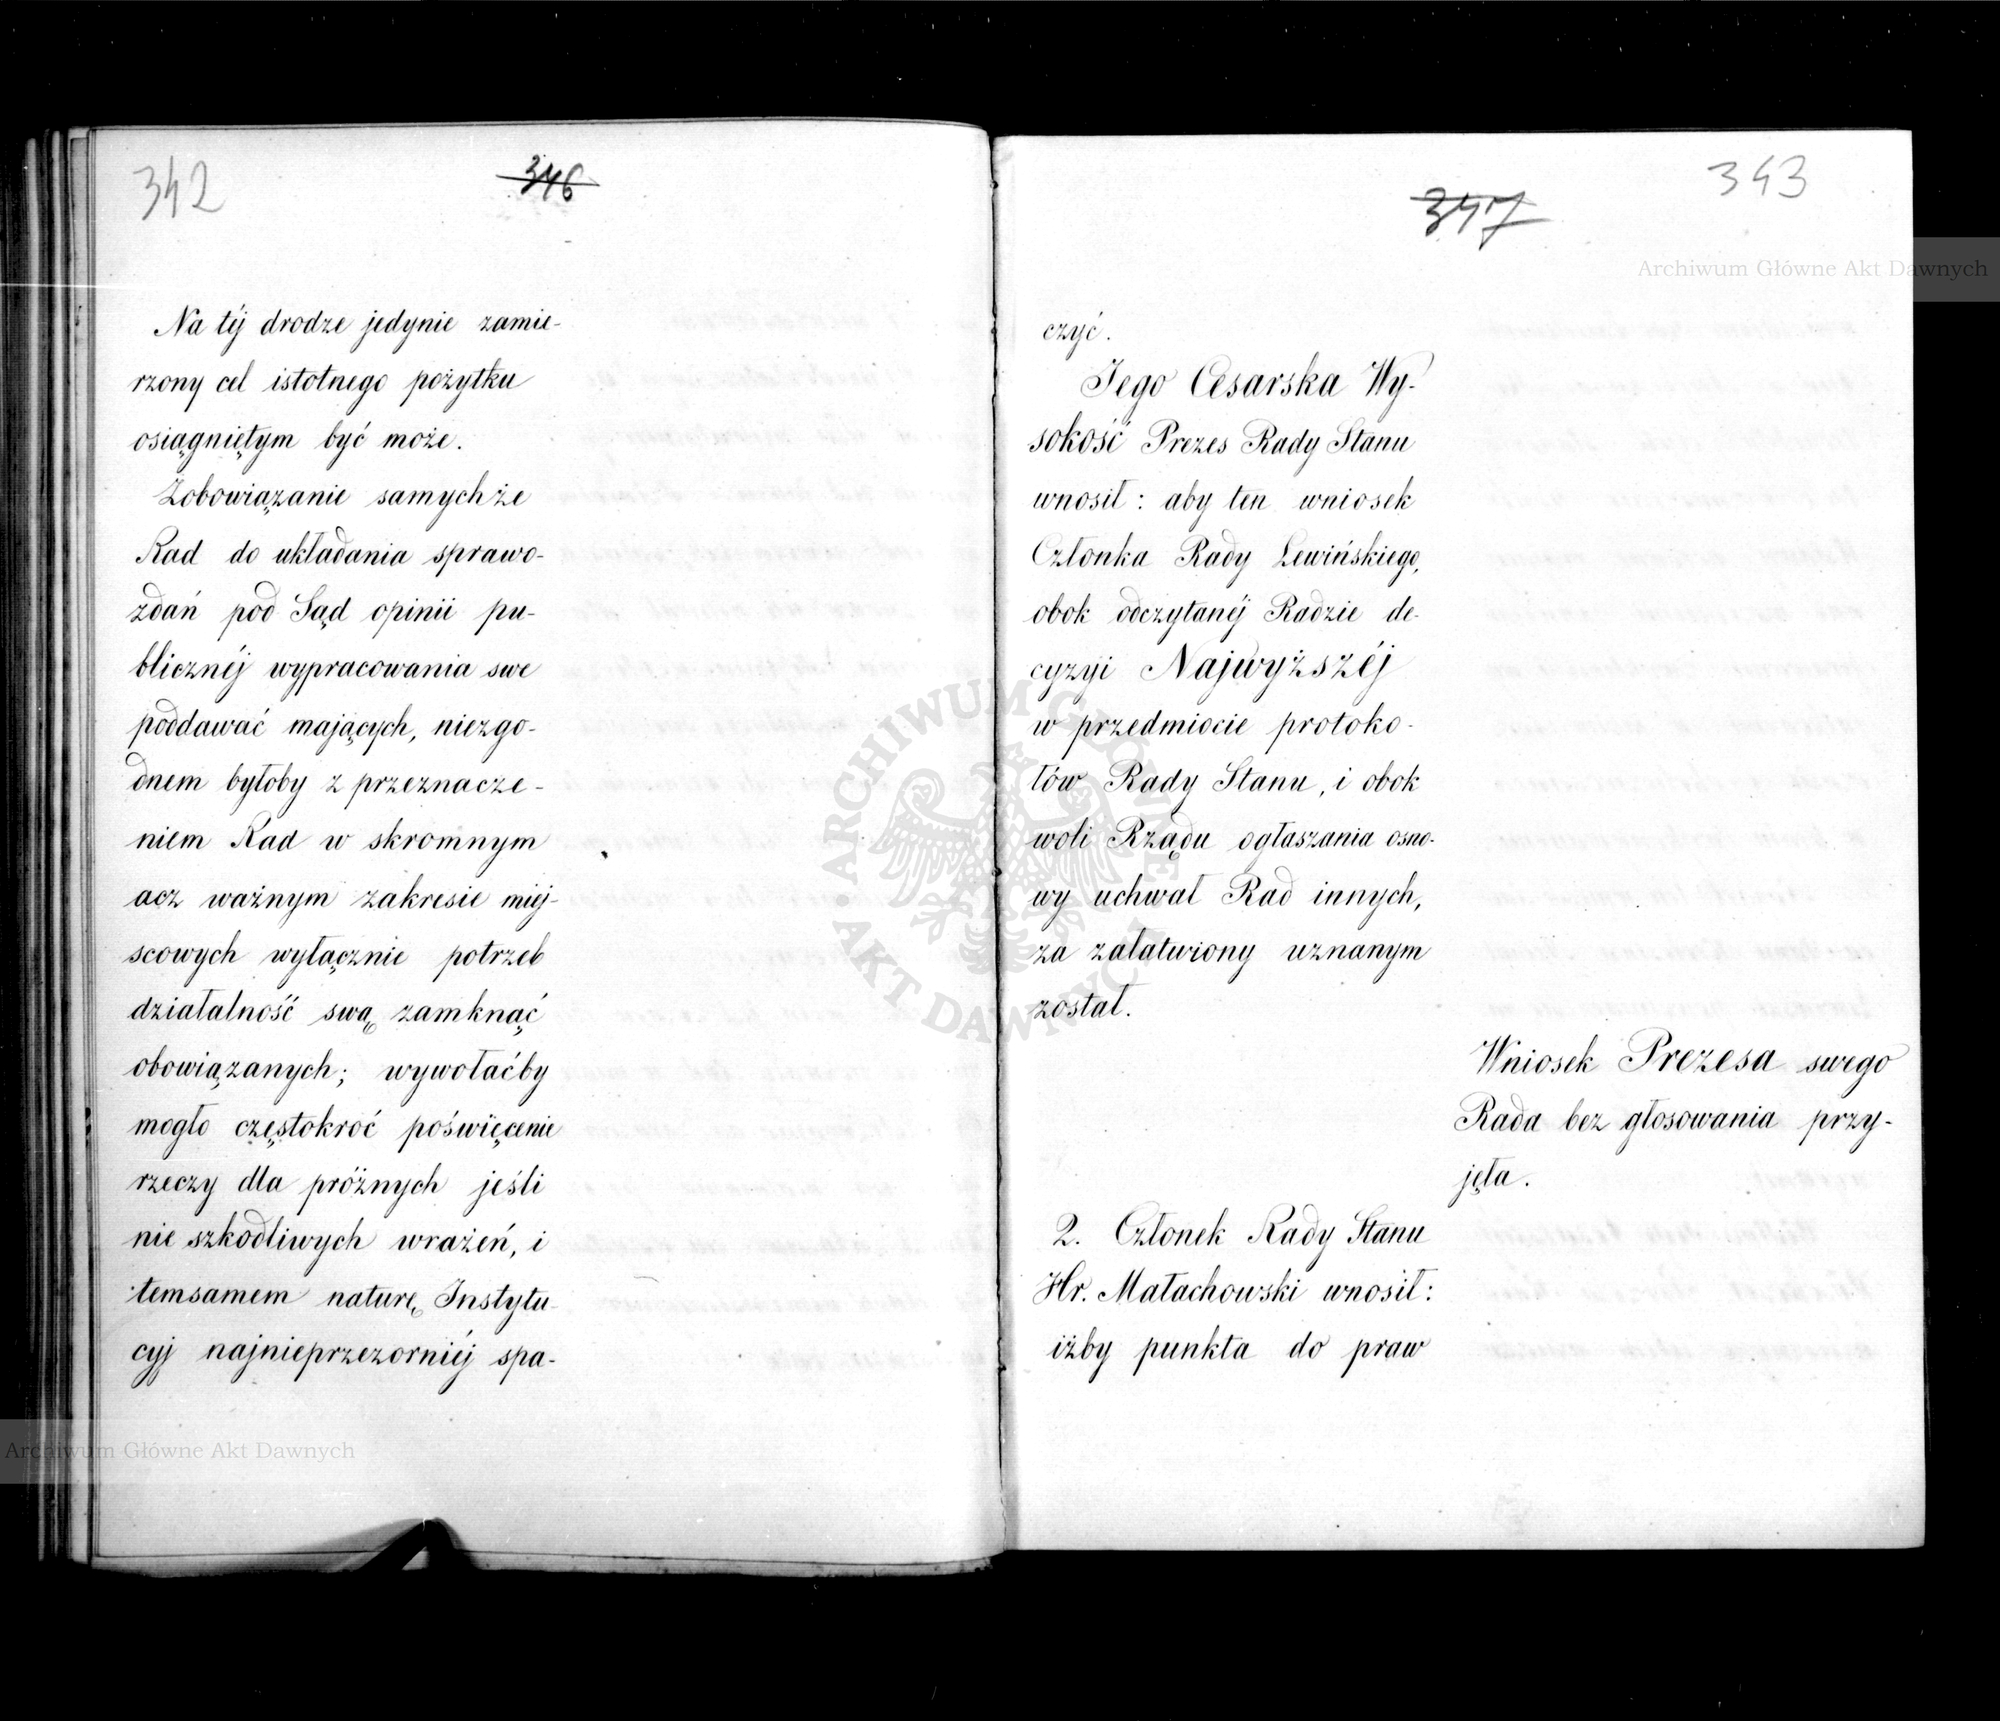 342
346
Na téj drodze jedynie zamie-
rzony cel istotnego pożytku
osiągniętym być może.
Zobowiązanie samychże
Rad do układania sprawo-
zdań pod Sąd opinii pu-
blicznéj wypracowania swe
poddawać mających, niezgo-
dnem byłoby z przeznacze-
niem Rad w skromnym
acz ważnym zakresie miej-
scowych wyłącznie potrzeb
działalność swą zamknąć
obowiązanych; wywołaćby
mogło częstokroć poświęcenie
rzeczy dla próżnych jeśli
nie szkodliwych wrażeń, i
temsamem naturę Instytu-
cyj najnieprzezorniéj spa-
343
347
czyć.
Jego Cesarska Wy-
sokość Prezes Rady Stanu
wnosił: aby ten wniosek
Członka Rady Lewińskiego,
obok odczytanéj Radzie de-
cyzyi Najwyższéj
w przedmiocie protoko-
łów Rady Stanu, i obok
woli Rządu ogłaszania osno-
wy uchwał Rad innych,
za załatwiony uznanym
został.
Wniosek Prezesa swego
Rada bez głosowania przy-
jęła.
2. Członek Rady Stanu
Hr. Małachowski wnosił:
iżby punkta do praw
Archiwum Główne Akt Dawnych
ARCHIWUM GŁÓWNE AKT DAWNYCH
Archiwum Główne Akt Dawnych